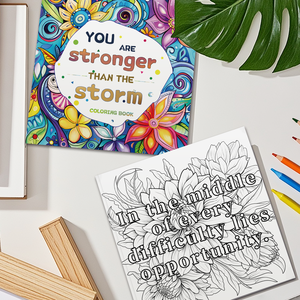 YOU
ARE
stronger
THAN THE
storm
COLORING BOOK
In the middle
of every
difficulty lies
opportunity.